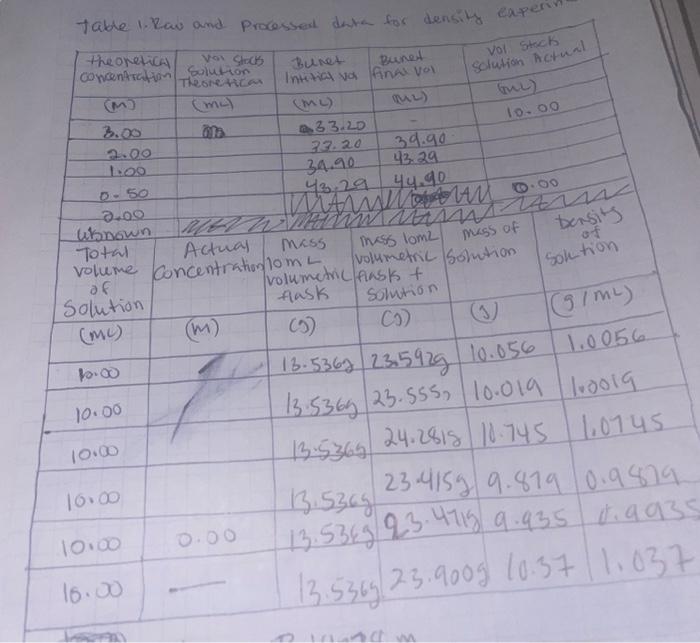 Table 1. Raw and Processed data for density
theoretical concentration (M) | Vol Stock Solution Theoretical (mL) | Buret Initial Vol (mL) | Buret final vol (mL) | Vol Stock Solution Actual (mL)
3.00 | 33.20 | - | 10.00
2.00 | 33.20 | 39.90
1.00 | 39.90 | 43.29
0.50 | 43.29 | 44.90
0.00 | 0.00
Unknown
Total volume of Solution (mL) | Actual Concentration (M) | Mass 10mL volumetric flask (g) | mass 10mL volumetric flask + Solution (g) | mass of Solution (g) | Density of Solution (g/mL)
10.00 | 13.536g | 23.592g | 10.056 | 1.0056
10.00 | 13.536g | 23.555g | 10.019 | 1.0019
10.00 | 13.536g | 24.281g | 10.745 | 1.0745
10.00 | 13.536g | 23.415g | 9.879 | 0.9879
10.00 | 0.00 | 13.536g | 23.471g | 9.935 | 0.9935
10.00 | — | 13.536g | 23.900g | 10.37 | 1.037